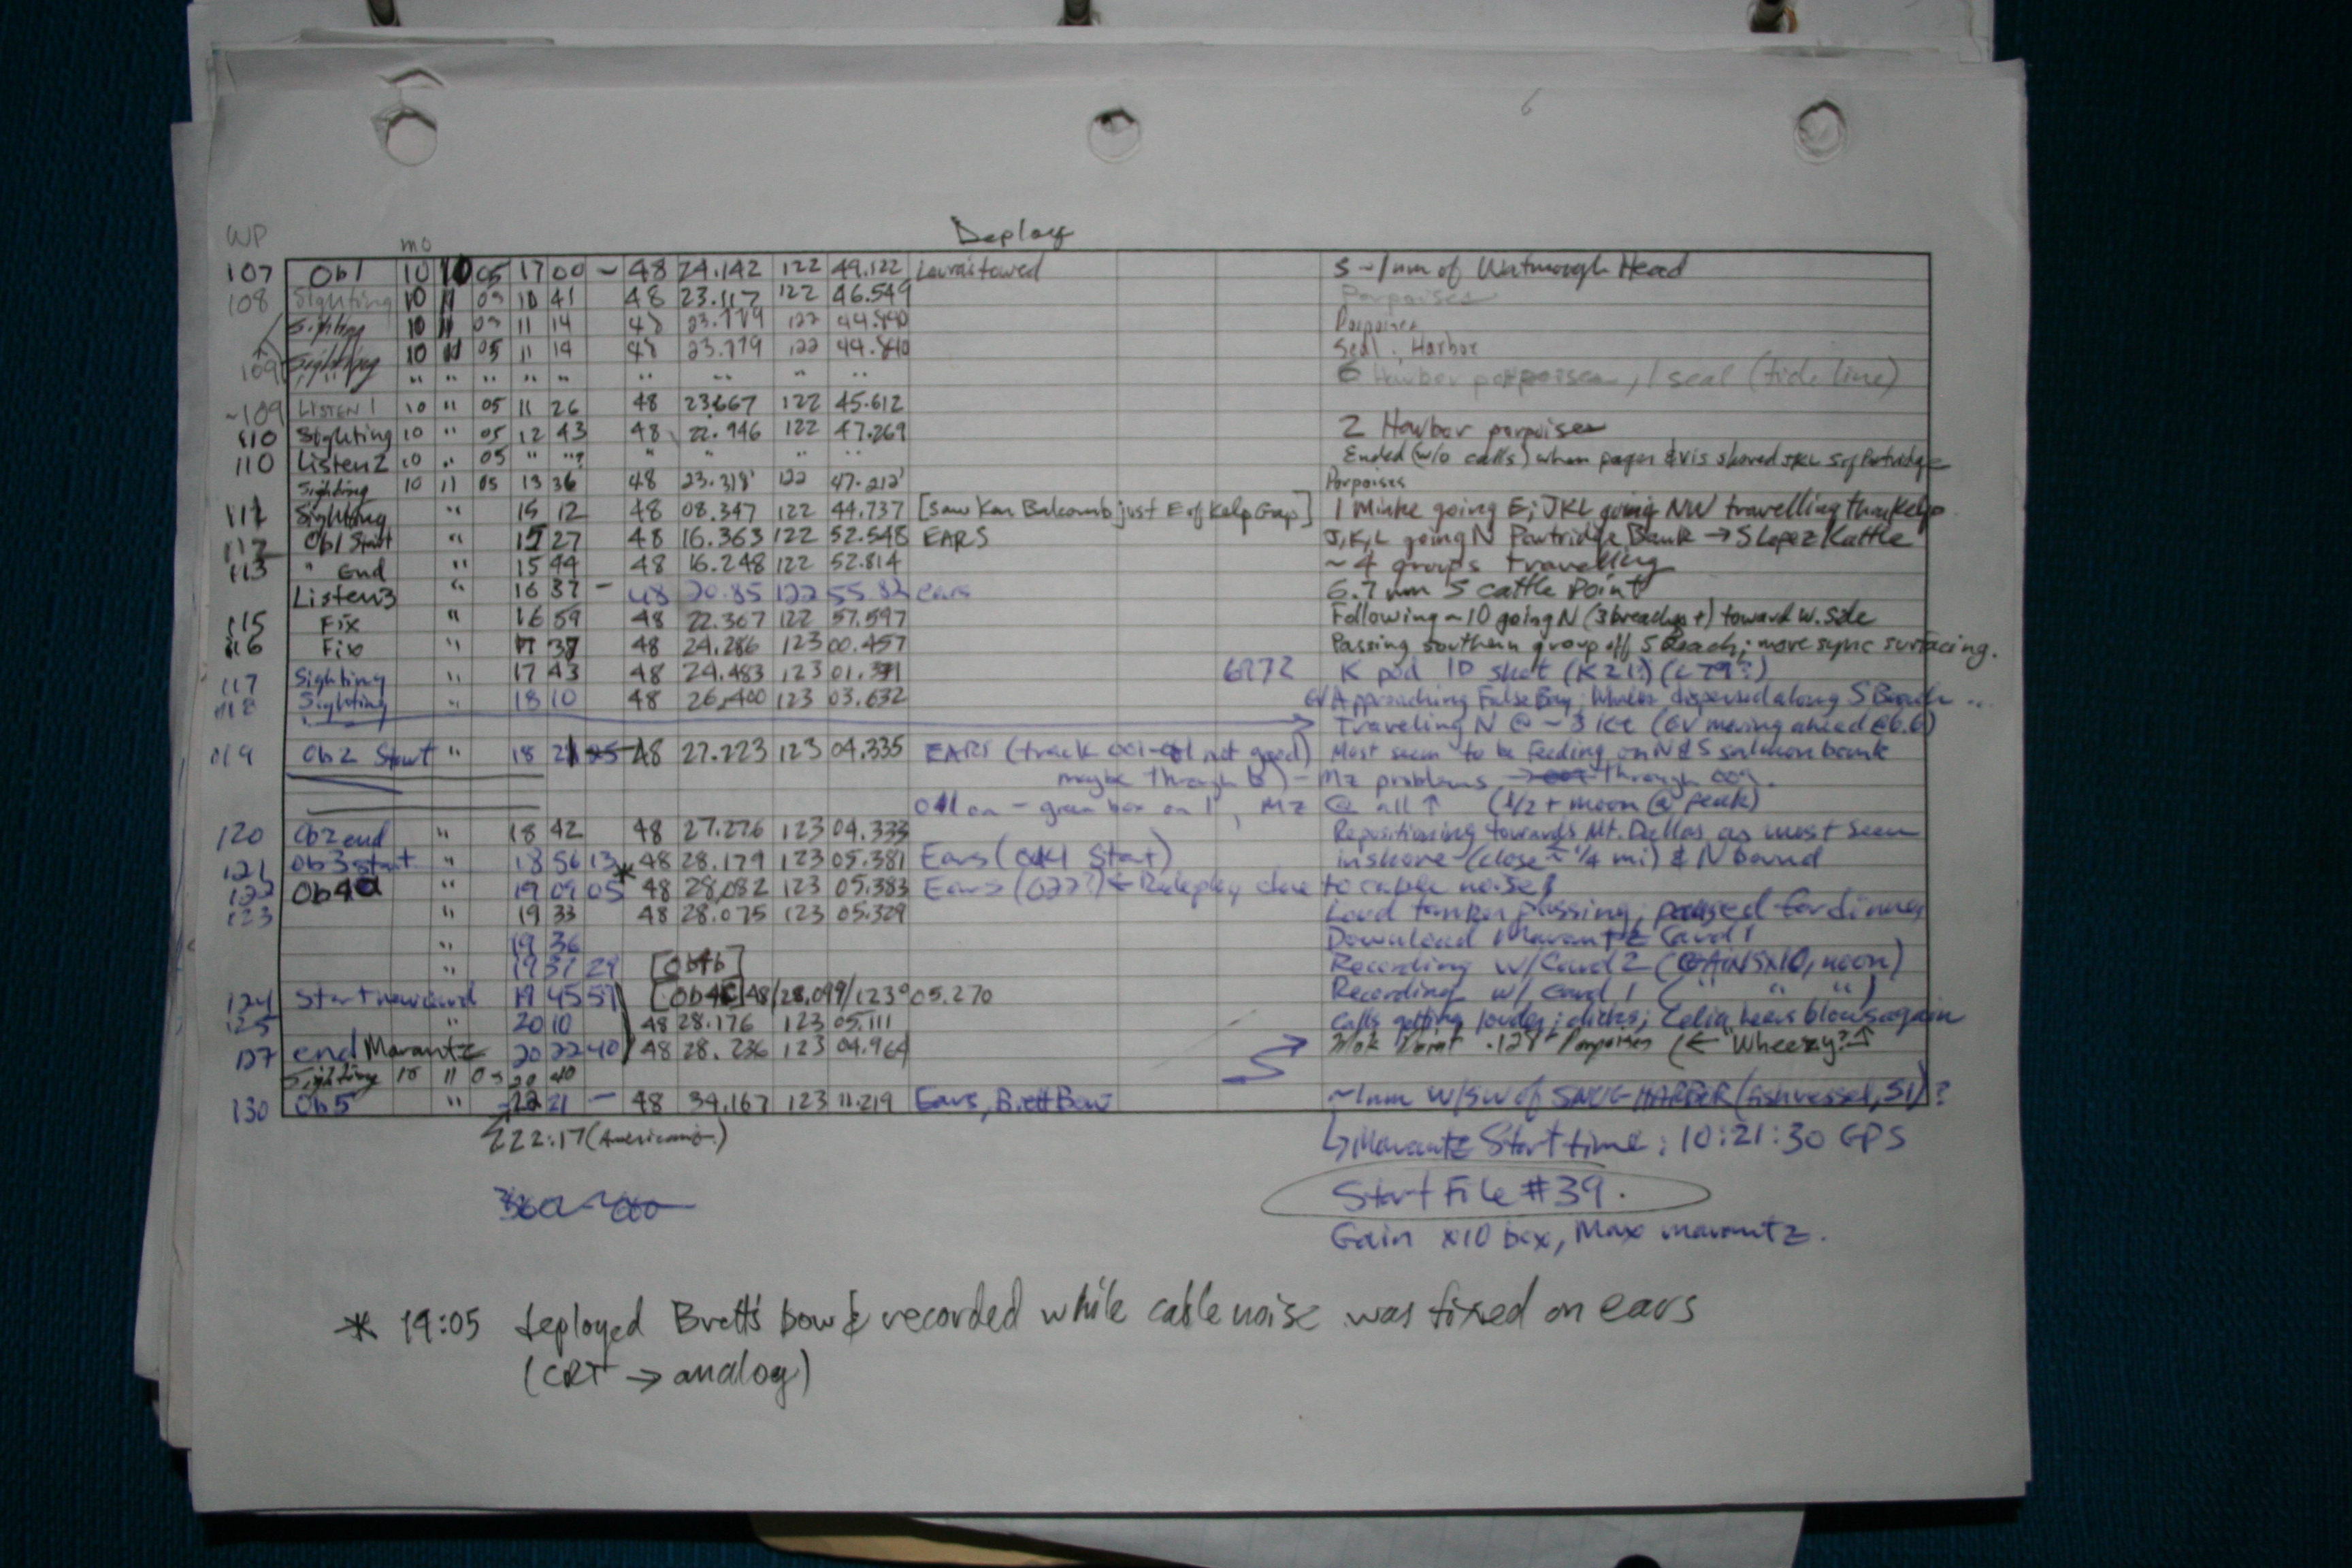 6
Deploy
WP mo
107 Ob1 10 10 05 17 00 ~ 48 24.142 122 49.122 towed S ~1nm of Watmough Head
108 Sighting 10 11 05 10 41 48 23.117 122 46.549 Porpoises
Sighting 10 11 05 11 14 48 23.779 122 44.840 Porpoises
109 Sighting 10 11 05 11 14 48 23.779 122 44.840 Seal, Harbor
" " " " " " " " " 6 Harbor porpoises, 1 seal (tide line)
~109 LISTEN 1 10 " 05 11 26 48 23.667 122 45.612
110 Sighting 10 " 05 12 43 48 22.946 122 47.269 2 Harbor porpoises
110 Listen 2 10 " 05 " "? " " " Ended (w/o calls) when pager & vis showed JKL S of Partridge
Sighting 10 11 05 13 36 48 23.318' 122 47.212' Porpoises
Sighting " 15 12 48 08.347 122 44.737 [Saw Ken Balcomb just E of Kelp Gap] 1 Minke going E; JKL going NW travelling thru kelp
112 Ob1 Start " 15 27 48 16.363 122 52.548 EARS J,K,L going N Partridge Bank → S Lopez/Cattle
113 " End " 15 44 48 16.248 122 52.814 ~4 groups travelling
Listen3 " 16 37 – 48 20.85 122 55.82 ears 6.7 nm S cattle Point
115 Fix " 16 59 48 22.367 122 57.597 Following ~10 going N (3 breaches +) toward W. Side
116 Fix " 17 37 48 24.286 123 00.457 Passing southern group off S Beach; more sync surfacing.
117 Sighting " 17 43 48 24.483 123 01.391 6972 K pod ID shot (K21?) (L79?)
118 Sighting " 18 10 48 26.400 123 03.632 GV Approaching False Bay; Whales dispersed along S Beach ...
Traveling N @ ~3 kt (GV moving ahead @6.6)
119 Ob2 Start " 18 21 48 27.223 123 04.335 EARS (track 001- not good) Most seem to be feeding on N & S salmon bank
maybe through 6) – Mz problems → through 009.
on – green box on 1, Mz @ all ↑ (1/2 + moon @ peak)
120 Ob2 end " 18 42 48 27.276 123 04.333 Repositioning towards Mt. Dallas as most seen
121 Ob3 start " 18 56 13 * 48 28.179 123 05.381 Ears ( Start) inshore (close ~ 1/4 mi) & N bound
122 Ob4a " 19 09 05 48 28.082 123 05.383 Ears (022?) ← Redeploy due to cable noise
123 " 19 33 48 28.075 123 05.329 Loud tanker passing; paused for dinner
" 19 36 Download Marantz Card 1
" 19 37 29 [Ob4b] Recording w/Card 2 (GAINS x10, noon)
124 Start new card 19 45 51 [Ob4C] 48/28.099/123° 05.270 Recording w/ card 1 (" " ")
125 " 20 10 48 28.176 123 05.111 Calls getting louder; clicks; Celia hears blows again
127 end Marantz 20 22 40 48 28.236 123 04.964 Porpoises (← "Wheezy?" ↑
Sighting 10 11 05 20 40
130 Ob5 " 22 21 – 48 34.167 123 11.219 Ears, Brett Bow ~1nm W/SW of SNUG HARBOR (fish vessel, SI)?
22:17 (Americano) ↳ Marantz Start time: 10:21:30 GPS
Start File #39.
Gain x10 box, Max marantz.
* 19:05 deployed Brett's bow & recorded while cable noise was fixed on ears
(CRT → analog)